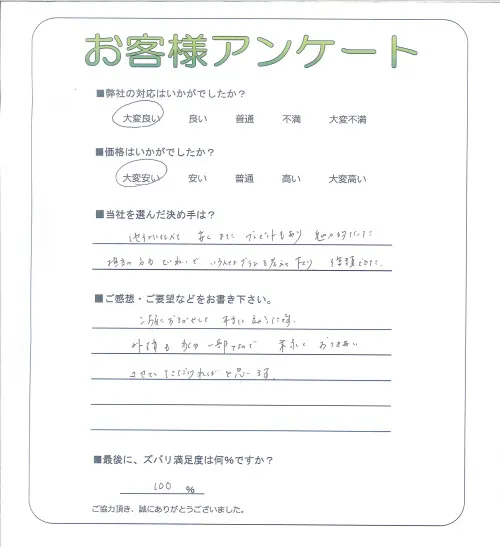 お客様アンケート
■弊社の対応はいかがでしたか?
大変良い 良い 普通 不満 大変不満
■価格はいかがでしたか?
大変安い 安い 普通 高い 大変高い
■当社を選んだ決め手は?
他社に比べて 安く また プレゼントもあり 魅力的でした
担当の方も ていねいで いろんなプランを考えて下さり
■ご感想・ご要望などをお書き下さい。
本当に良かったです。
外構も 家の一部なので 末永く おつきあい
させていただければ と思います。
■最後に、ズバリ満足度は何%ですか?
100 %
ご協力頂き、誠にありがとうございました。